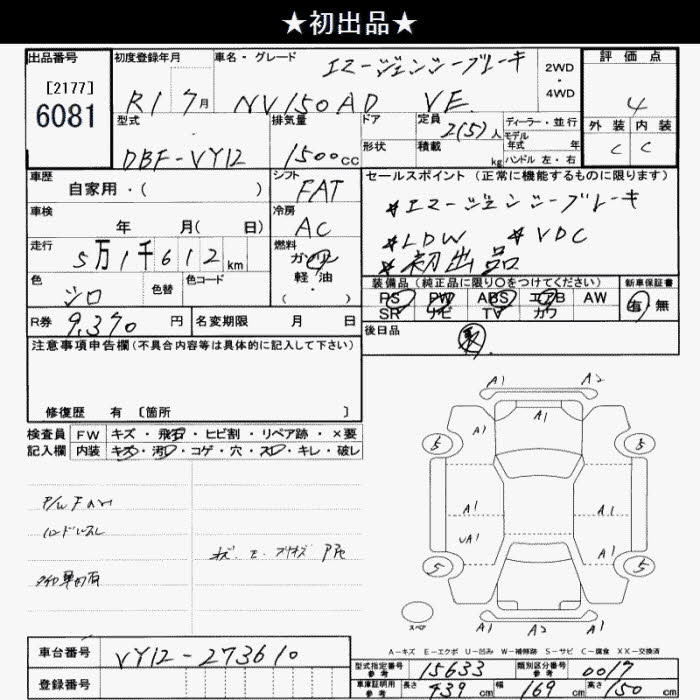 ★初出品★
出品番号
[2177]
6081
初度登録年月
R1 7月
車名・グレード
エマージェンシーブレーキ
NV150AD VE
2WD
・
4WD
評価点
4
外装 内装
C C
型式
DBF-VY12
排気量
1500cc
ドア
形状
定員
2(5)人
積載
kg
ディーラー・並行
モデル
年式 年
ハンドル 左・右
車歴
自家用・( )
シフト
FAT
車検
年 月( 日)
冷房
AC
走行
5万1千612km
燃料
ガソリン
軽・油
・( )
色
シロ
色替
色コード
R券 9,370円
名変期限 月 日
セールスポイント (正常に機能するものに限ります)
*エマージェンシーブレーキ
*LDW *VDC
*初出品
装備品 (純正品に限り○をつけてください)
PS PW ABS エアB AW
SR ナビ TV カワ
新車保証書
有 無
後日品
注意事項申告欄(不具合内容等は具体的に記入して下さい)
修復歴 有 〔箇所 〕
検査員
記入欄
FW キズ・飛石・ヒビ割・リペア跡・×要
内装 キズ・汚レ・コゲ・穴・スレ・キレ・破レ
A1 A2
A1 A1
5 5
A1 A1
UA1 A1
5 5
A1 A2 A1
スペア
A-キズ E-エクボ U-凹み W-補修跡 S-サビ C-腐食 XX-交換済
車台番号 VY12-273610
登録番号
型式指定番号
参考
15633
類別区分番号
参考
0017
車庫証明用
参考
長さ 439cm 幅 169cm 高さ 150cm